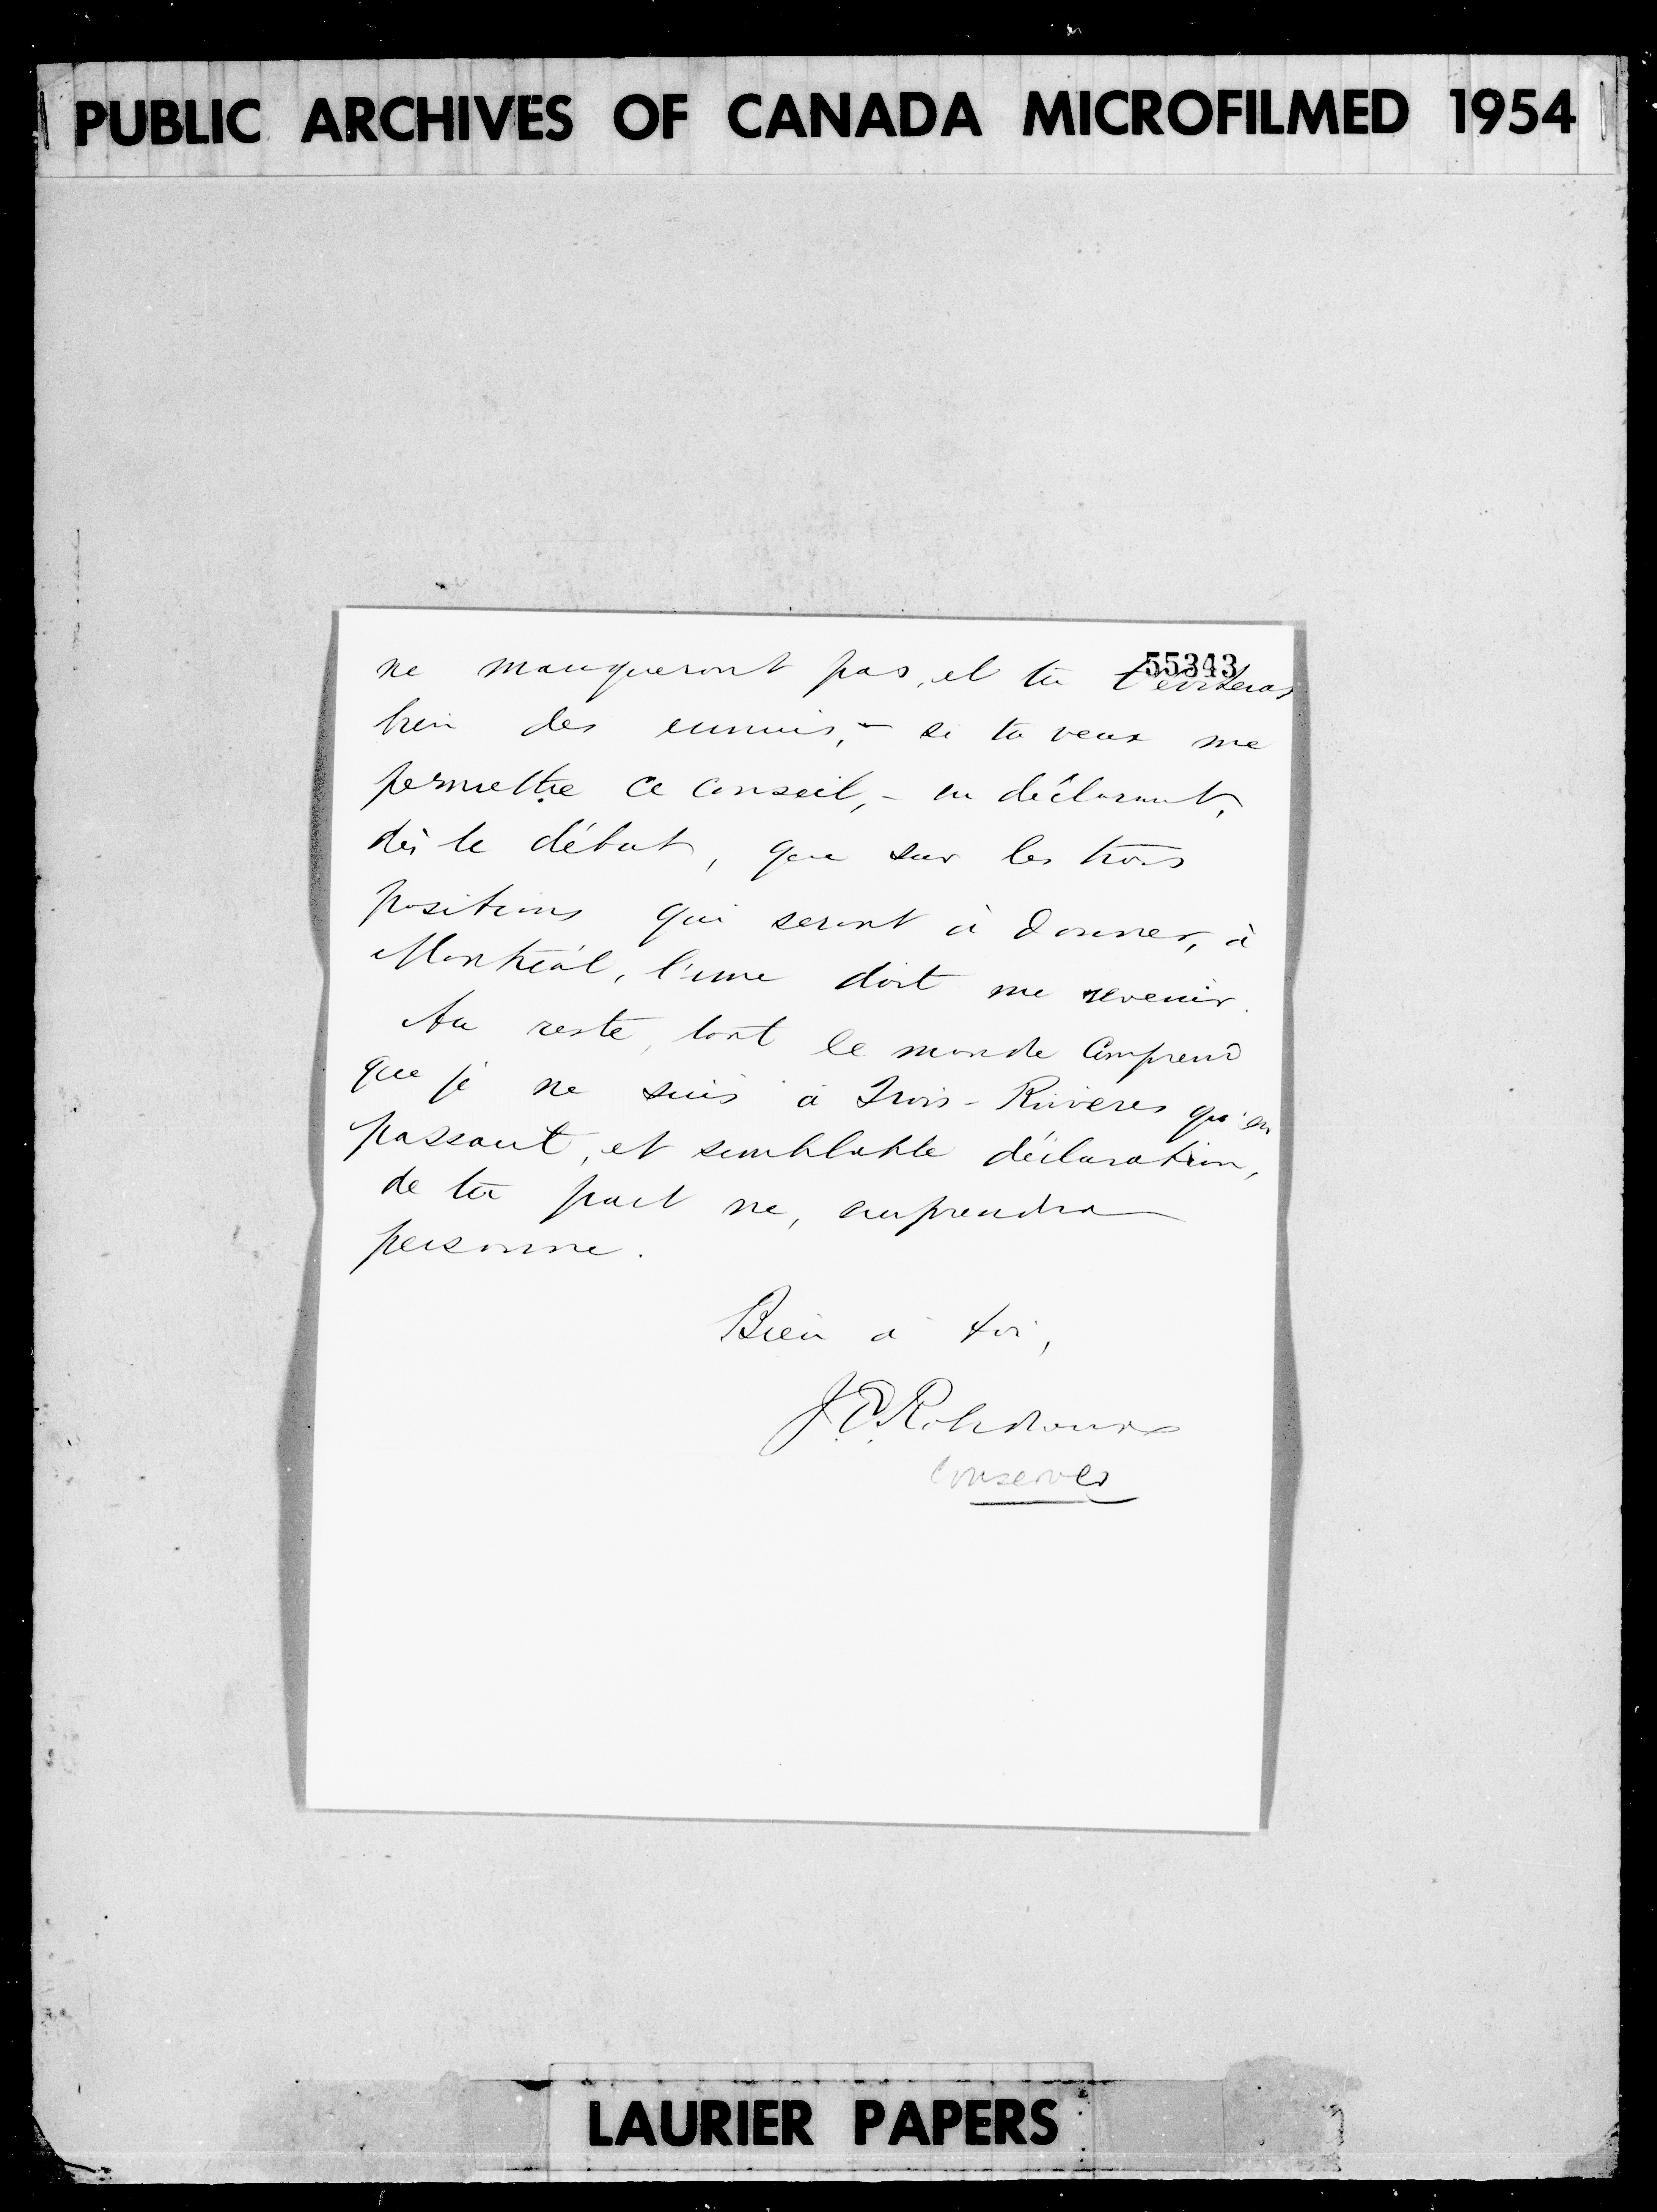 PUBLIC ARCHIVES OF CANADA MICROFILMED 1954
55343
ne manqueront pas, et tu t'éviteras
bien des ennuis, - si tu veux me
permettre ce conseil, - en déclarant,
dès le début, que sur les trois
positions qui seront à donner, à
Montréal, l'une doit me revenir.
Au reste, tout le monde comprend
que je ne suis à Trois-Rivières qu'en
passant, et semblable déclaration,
de ta part ne, surprendra
personne.
Bien à toi,
J. E. Robidoux
Conserver
LAURIER PAPERS